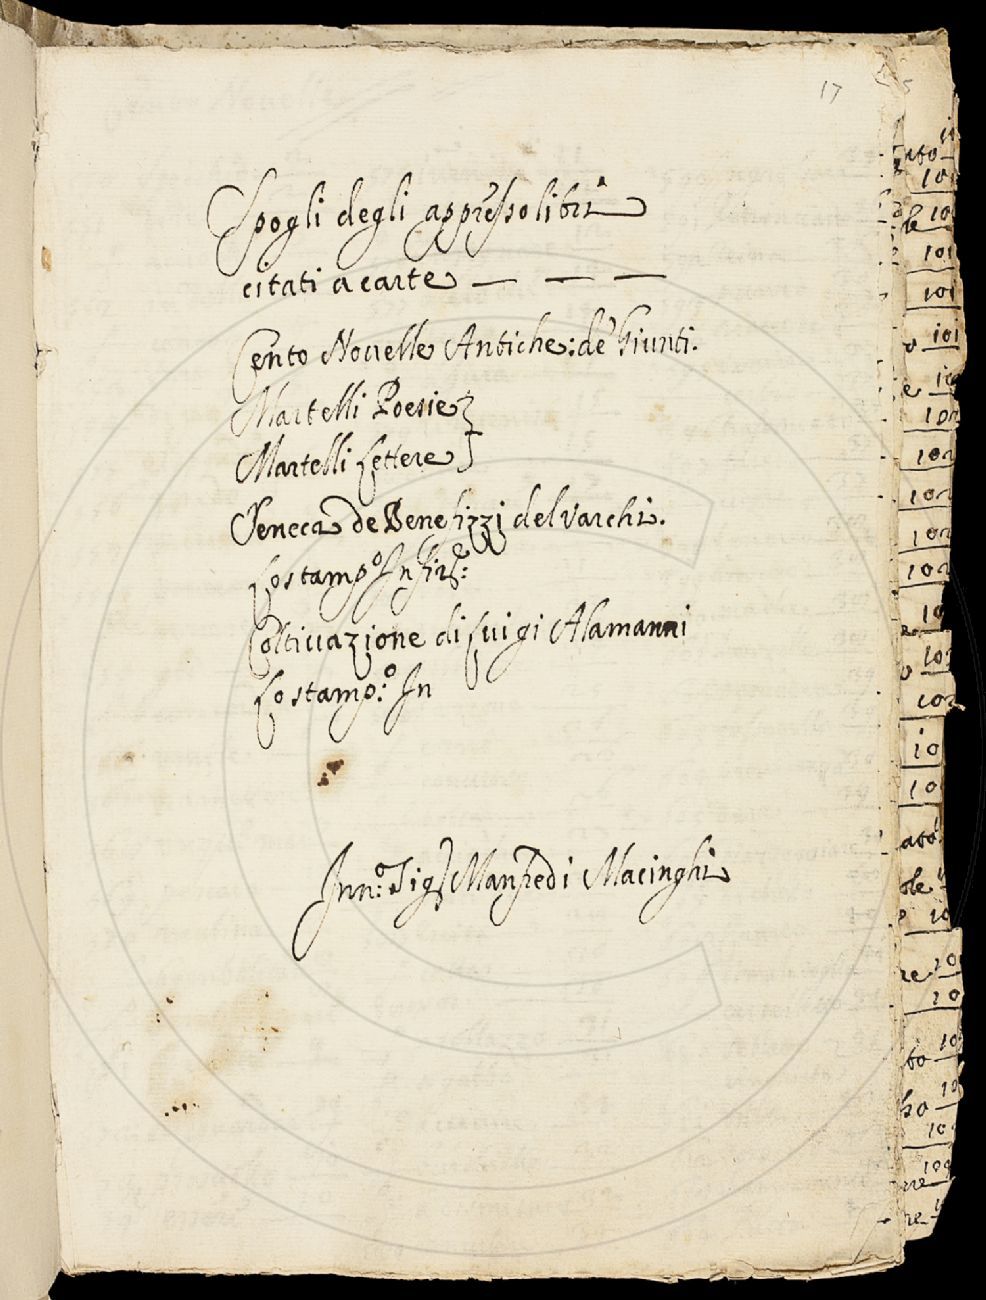 17
Spogli degli appresso libri
citati a carte — — —
Cento Nouelle Antiche: de' Giunti.
Martelli Poesie
Martelli Lettere
Seneca de Benefizzi del Varchi.
Lo stamp.º In Fir.e:
Coltiuazione di Luigi Alamanni
Lo stamp.º In
Inn.º Sig.r Manfredi Macinghi